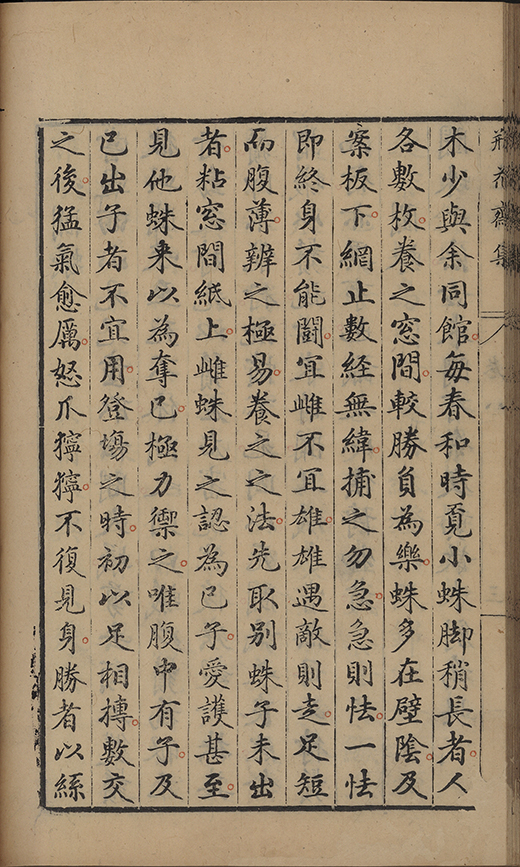 瓶花齋集
木少與余同館每春和時覓小蛛脚稍長者人
各數枚養之窓間較勝負為樂蛛多在壁陰及
案板下網止數經無緯捕之勿急急則怯一怯
即終身不能鬪宜雌不宜雄雄遇敵則走足短
而腹薄辨之極易養之之法先取別蛛子未出
者粘窓間紙上雌蛛見之認為己子愛護甚至
見他蛛来以為奪己極力禦之唯腹中有子及
已出子者不宜用登塲之時初以足相搏數交
之後猛氣愈厲怒爪獰獰不復見身勝者以絲